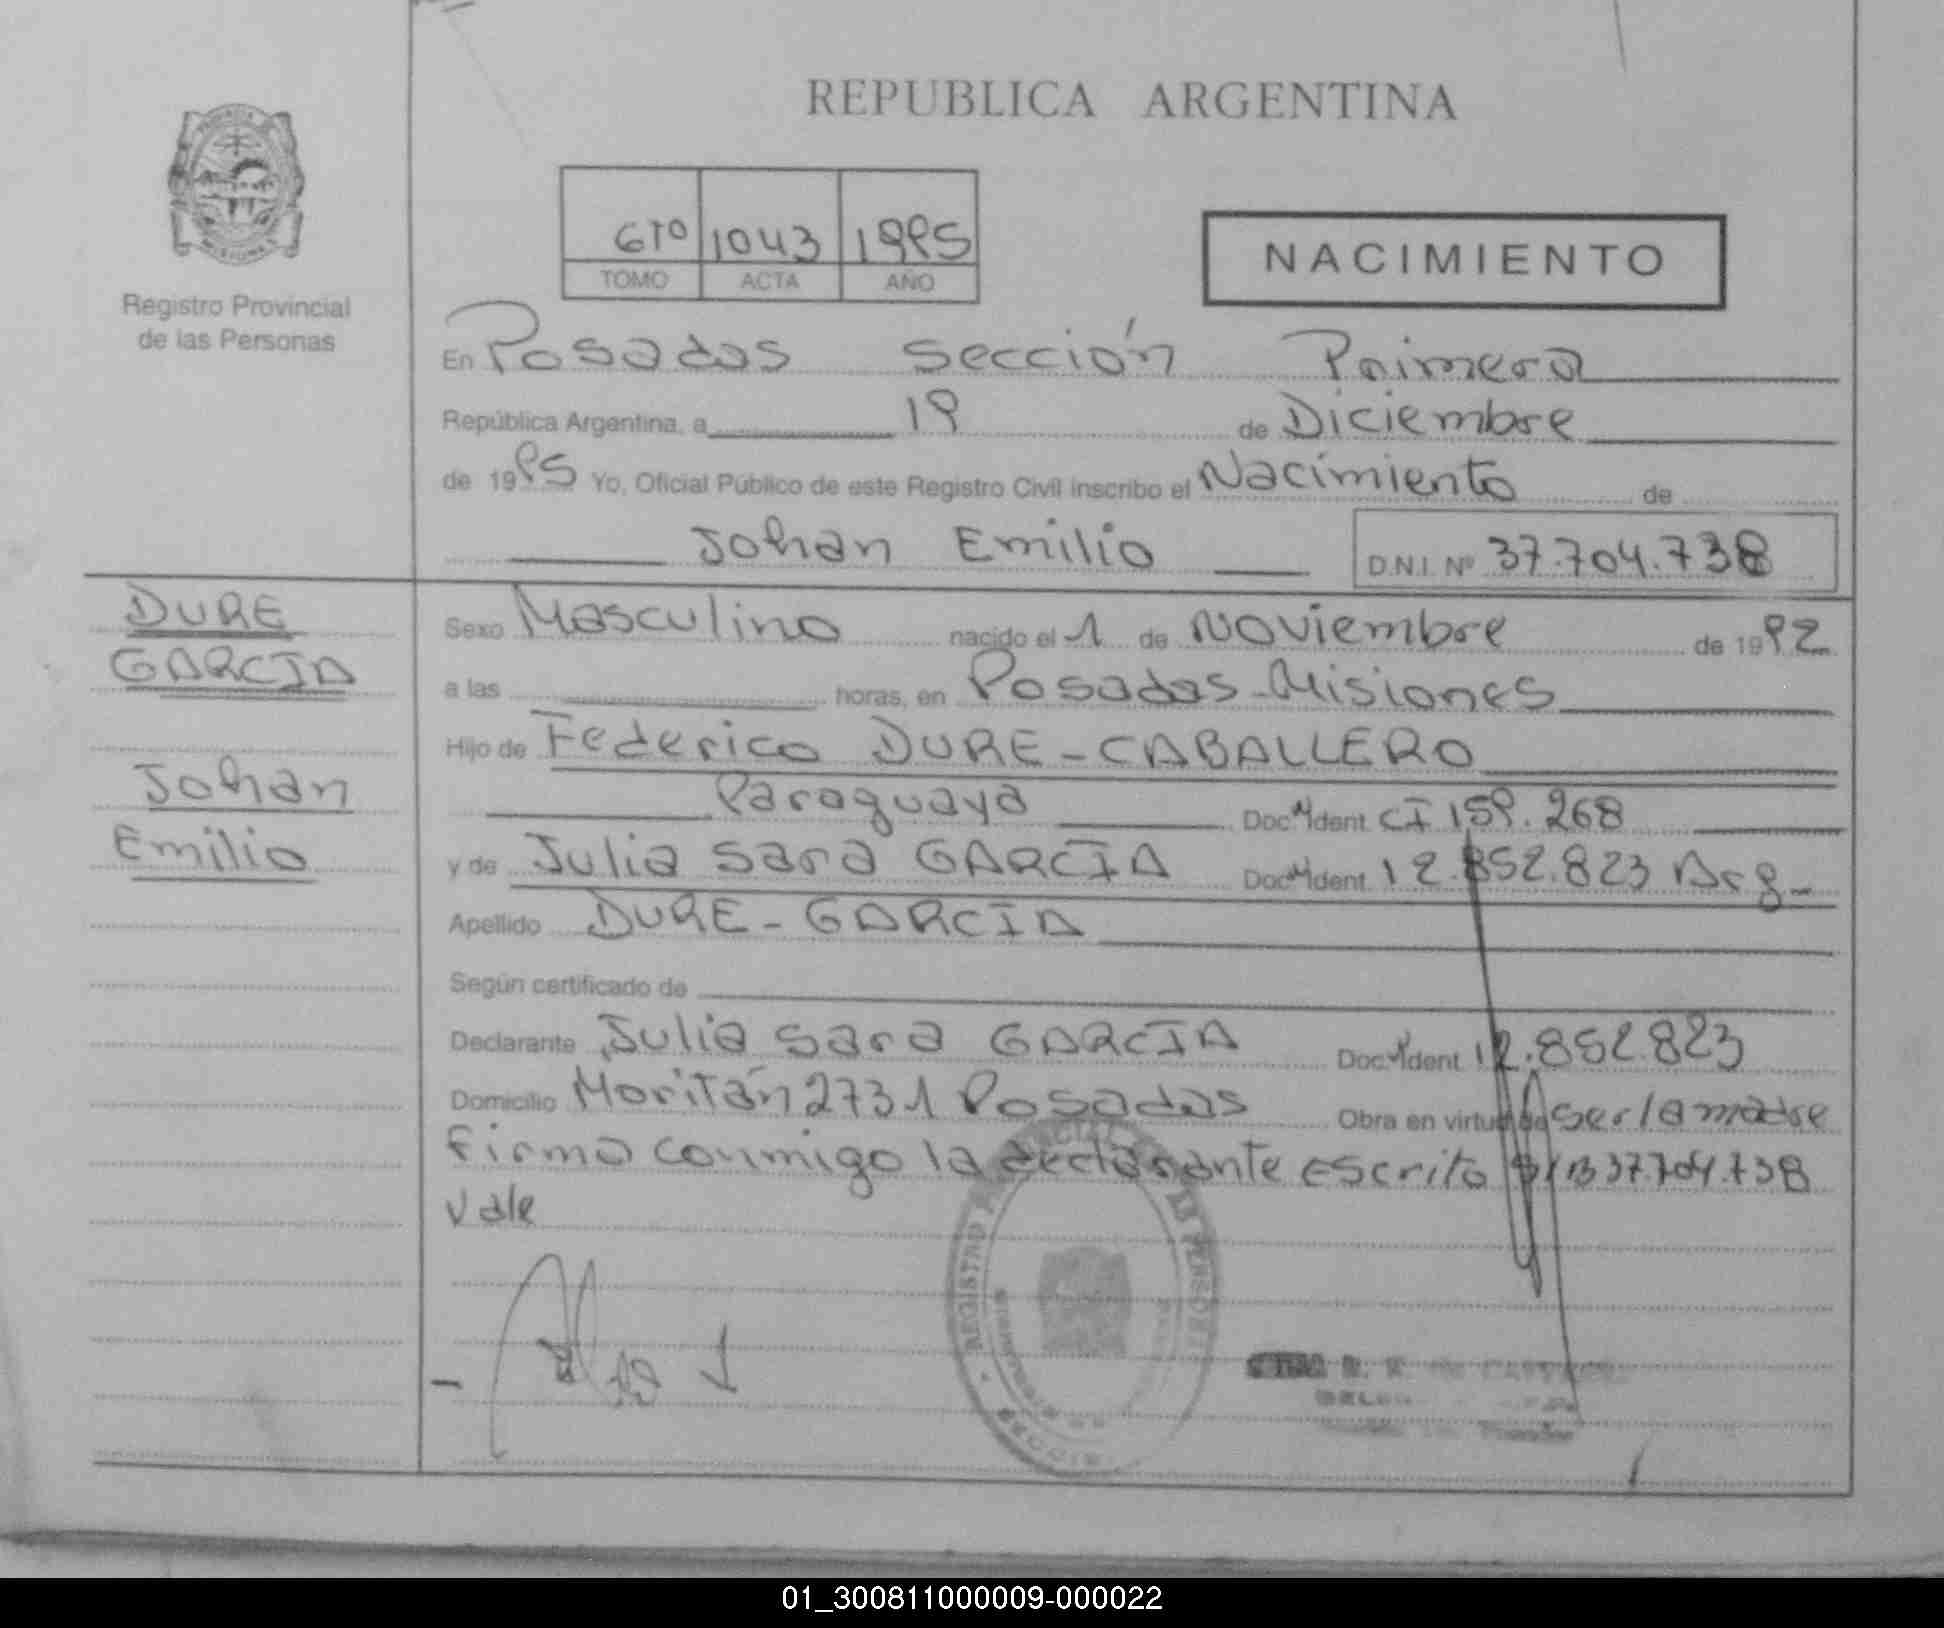 REPUBLICA ARGENTINA
Registro Provincial
de las Personas
6TO 1043 1995
TOMO ACTA AÑO
NACIMIENTO
En Posadas sección Primera
República Argentina, a 19 de Diciembre
de 1995 Yo, Oficial Público de este Registro Civil inscribo el Nacimiento de
Johan Emilio D.N.I. Nº 37.704.738
DURE
GARCIA
Johan
Emilio
Sexo Masculino nacido el 1 de Noviembre de 1992
a las horas, en Posadas-Misiones
Hijo de Federico DURE-CABALLERO
Paraguaya Doc. Ident. CI 159.268
y de Julia Sara GARCIA Doc. Ident. 12.852.823 Arg-
Apellido DURE-GARCIA
Según certificado de
Declarante Julia Sara GARCIA Doc. Ident. 12.852.823
Domicilio Moritán 2731 Posadas Obra en virtud de ser la madre
Firma conmigo la declarante escrito S/B 37.704.738
Vale
REGISTRO PROVINCIAL DE LAS PERSONAS
01_300811000009-000022